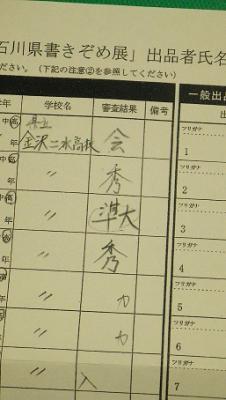 石川県書きぞめ展」出品者氏名
ださい。(下記の注意②を参照してください)
学年 学校名 審査結果 備考
一般出品
フリガナ
中高 年 県立 金沢二水高校 会
1
フリガナ
年 〃 秀
2
フリガナ
高 年 〃 準大
3
フリガナ
年 〃 秀
4
フリガナ
年 〃 カ
5
フリガナ
年 〃 カ
6
フリガナ
〃 入
7